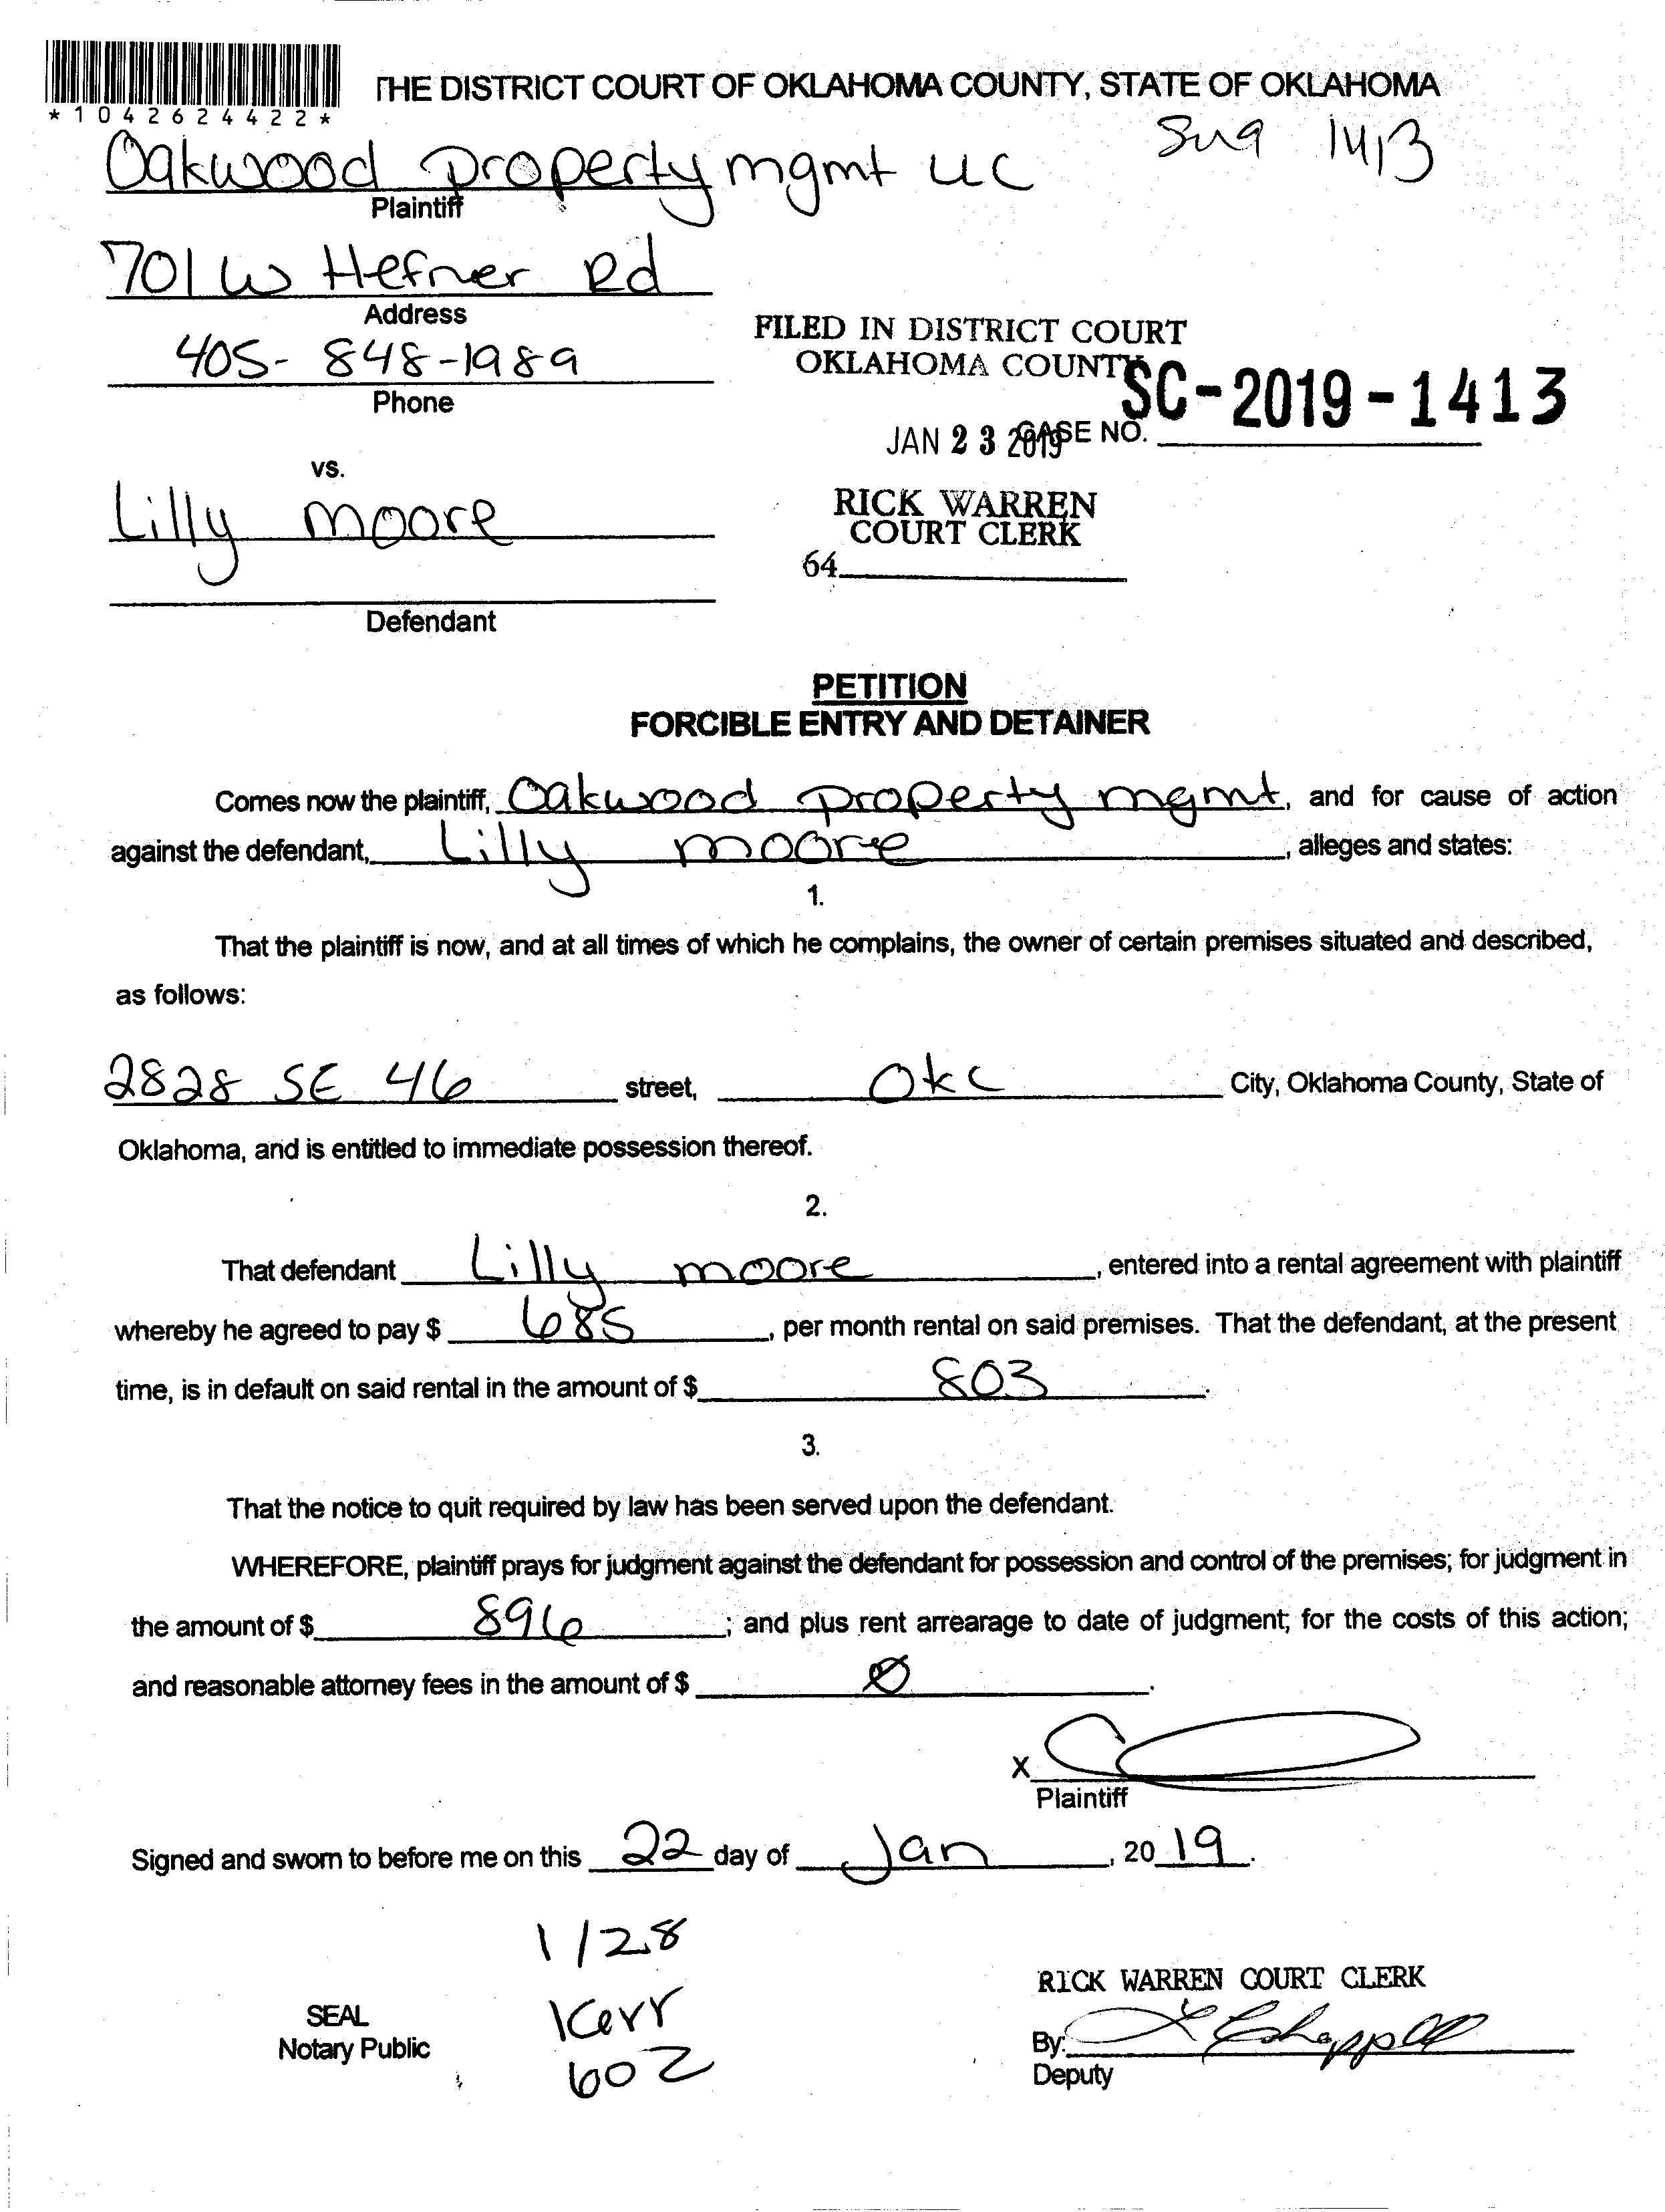 THE DISTRICT COURT OF OKLAHOMA COUNTY, STATE OF OKLAHOMA
*1042624422*
1413
Oakwood property mgmt LLC
Plaintiff
701 W Hefner Rd
Address
405-848-1989
Phone
FILED IN DISTRICT COURT
OKLAHOMA COUNTY
JAN 23 2019
CASE NO. SC-2019-1413
vs.
RICK WARREN
COURT CLERK
64
Lilly moore
Defendant
PETITION
FORCIBLE ENTRY AND DETAINER
Comes now the plaintiff, Oakwood property mgmt, and for cause of action
against the defendant, Lilly moore, alleges and states:
1.
That the plaintiff is now, and at all times of which he complains, the owner of certain premises situated and described,
as follows:
2828 SE 46 street, OKC City, Oklahoma County, State of
Oklahoma, and is entitled to immediate possession thereof.
2.
That defendant Lilly moore, entered into a rental agreement with plaintiff
whereby he agreed to pay $ 685, per month rental on said premises. That the defendant, at the present
time, is in default on said rental in the amount of $ 803.
3.
That the notice to quit required by law has been served upon the defendant.
WHEREFORE, plaintiff prays for judgment against the defendant for possession and control of the premises; for judgment in
the amount of $ 896; and plus rent arrearage to date of judgment; for the costs of this action;
and reasonable attorney fees in the amount of $ 0.
X
Plaintiff
Signed and sworn to before me on this 22 day of Jan, 2019.
1/28
Kerr
602
SEAL
Notary Public
RICK WARREN COURT CLERK
By:
Deputy